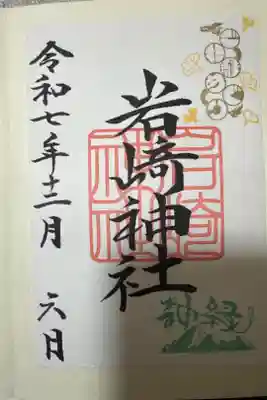 岩崎神社
令和七年十二月 六日